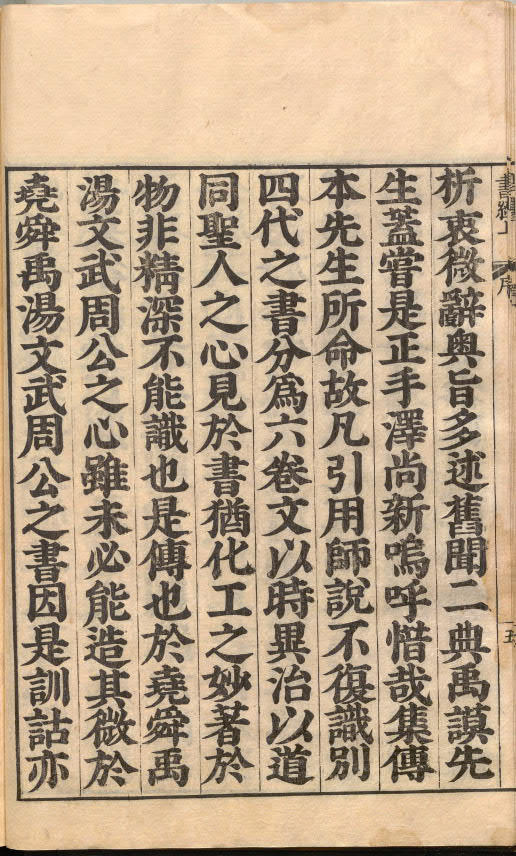 折衷微辭奥旨多述舊聞二典禹謨先
生蓋嘗是正手澤尚新嗚呼惜哉集傳
本先生所命故凡引用師說不復識別
四代之書分爲六卷文以時異治以道
同聖人之心見於書猶化工之妙著於
物非精深不能識也是傳也於堯舜禹
湯文武周公之心雖未必能造其微於
堯舜禹湯文武周公之書因是訓詁亦